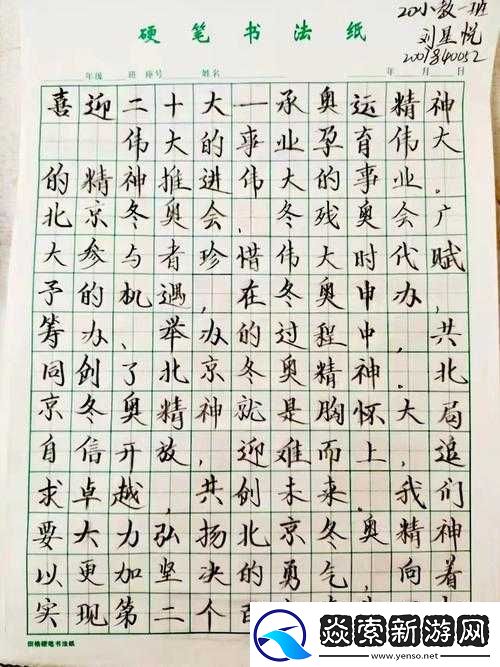 20小教一班
刘星悦
硬笔书法纸
年级 班 座号 姓名 年 月 日
喜迎二十大一承奥运精神
伟大的事业孕育伟大
的精神推进伟大的事业。
北京冬奥会、冬残奥会广
大参与者珍惜伟大时代赋
予的机遇,在冬奥申办,
筹办、举办的过程中,共
同创了北京冬奥精神。北
京冬奥精神就是胸怀大局
自信开放,迎难而上,追
求卓越,共创未来。我们
要大力弘扬北京冬奥精神
以更加坚决的勇气,向着
实现第二个百
田格硬笔书法纸
焱索新游网
www.yenso.net